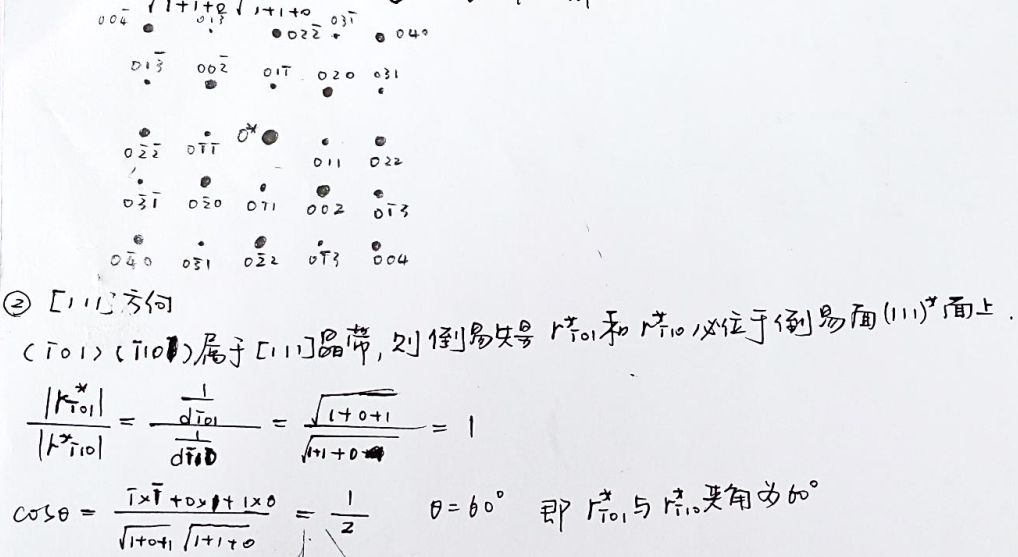 √1+1+0 √1+1+0
004̄ 013̄ 022̄ 031̄ 040
013̄ 002̄ 011̄ 020 031
02̄2̄ 01̄1̄ 0* 011 022
03̄1̄ 02̄0 01̄1 002 01̄3
04̄0 03̄1 02̄2 01̄3 004
② [111]方向
(1̄01)(1̄10)属于[111]晶带,则倒易矢号 r*1̄01和 r*1̄10必位于倒易面(111)*面上.
|r*1̄01| / |r*1̄10| = (1/d1̄01) / (1/d1̄10) = √1+0+1 / √1+1+0 = 1
cosθ = 1̄×1̄+0×1+1×0 / √1+0+1 √1+1+0 = 1/2 θ=60° 即 r*1̄01与 r*1̄10夹角为60°